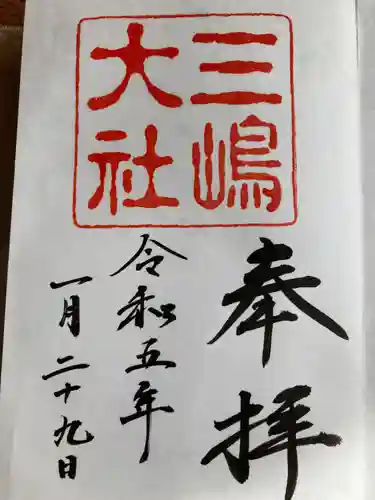 三嶋
大社
奉拝
令和五年
一月二十九日